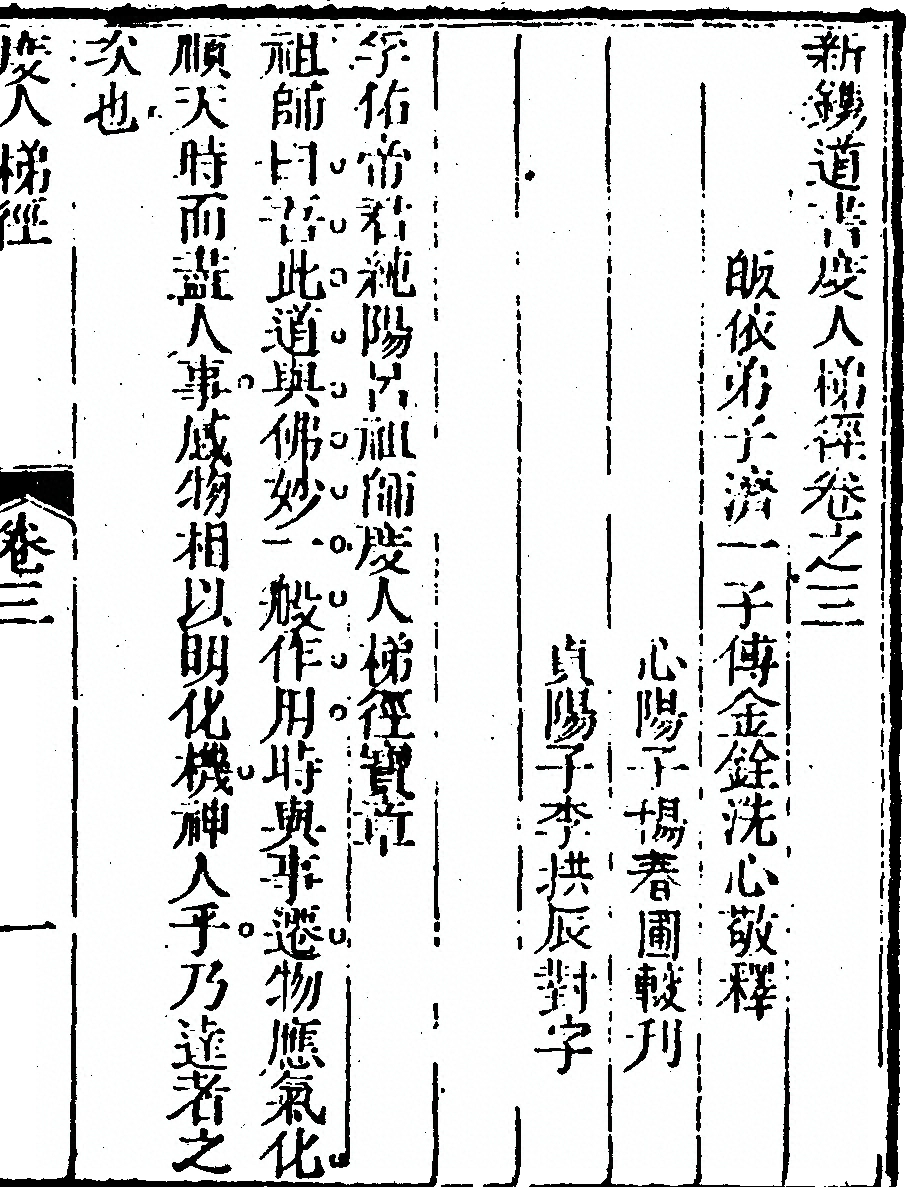 新鐫道書度人梯徑卷之三
皈依弟子濟一子傳金銓洗心敬釋
心陽子楊春圃較刋
貞陽子李拱辰對字
孚佑帝君純陽呂祖師度人梯徑寶章
祖師曰吾此道與佛妙一般作用時與事遷物應氣化
順天時而盡人事感物相以明化機神人乎乃達者之
次也
度人梯徑
卷三
一